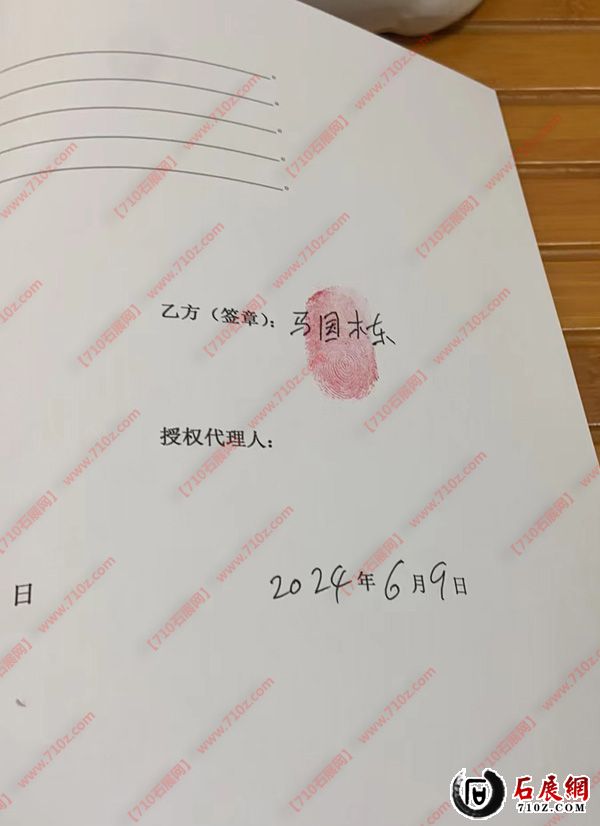 乙方（签章）：马国栋
授权代理人：
日
2024年6月9日
【710石展网】 www.710z.com
石展網
710Z.COM